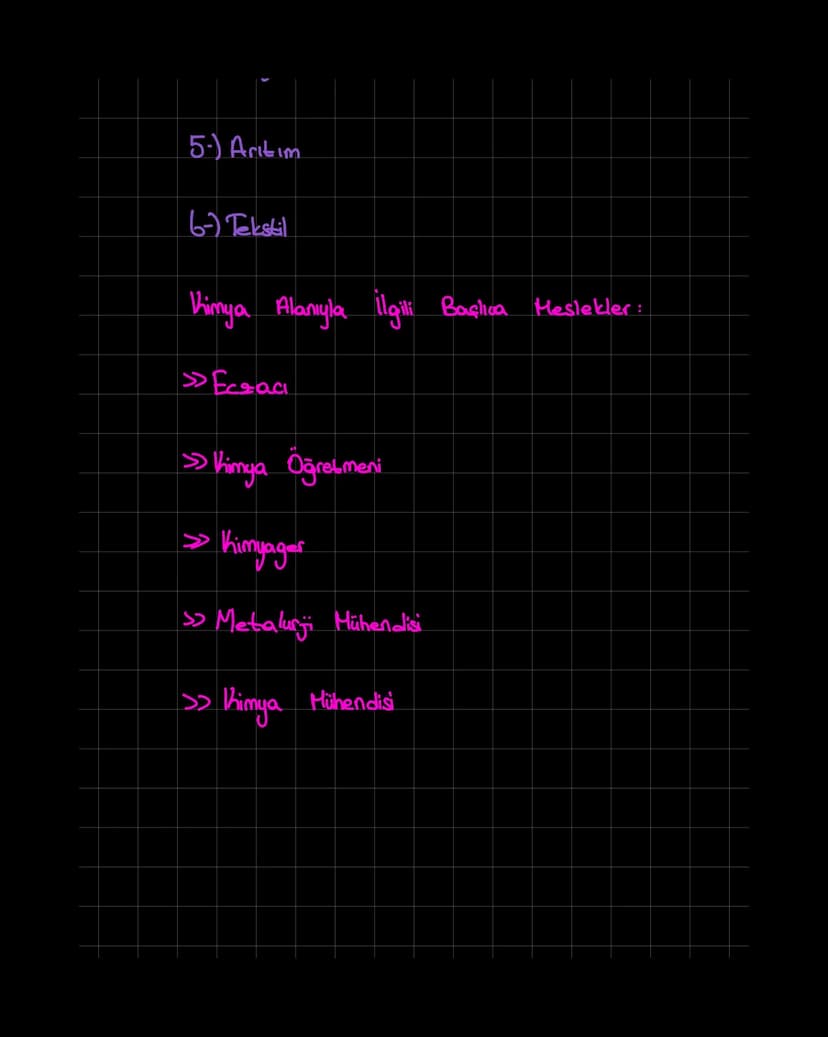 5-) Arıtım
6-) Tekstil
Kimya Alanıyla İlgili Başlıca Meslekler:
>> Eczacı
>> Kimya Öğretmeni
>> Kimyager
>> Metalurji Mühendisi
>> Kimya Mühendisi